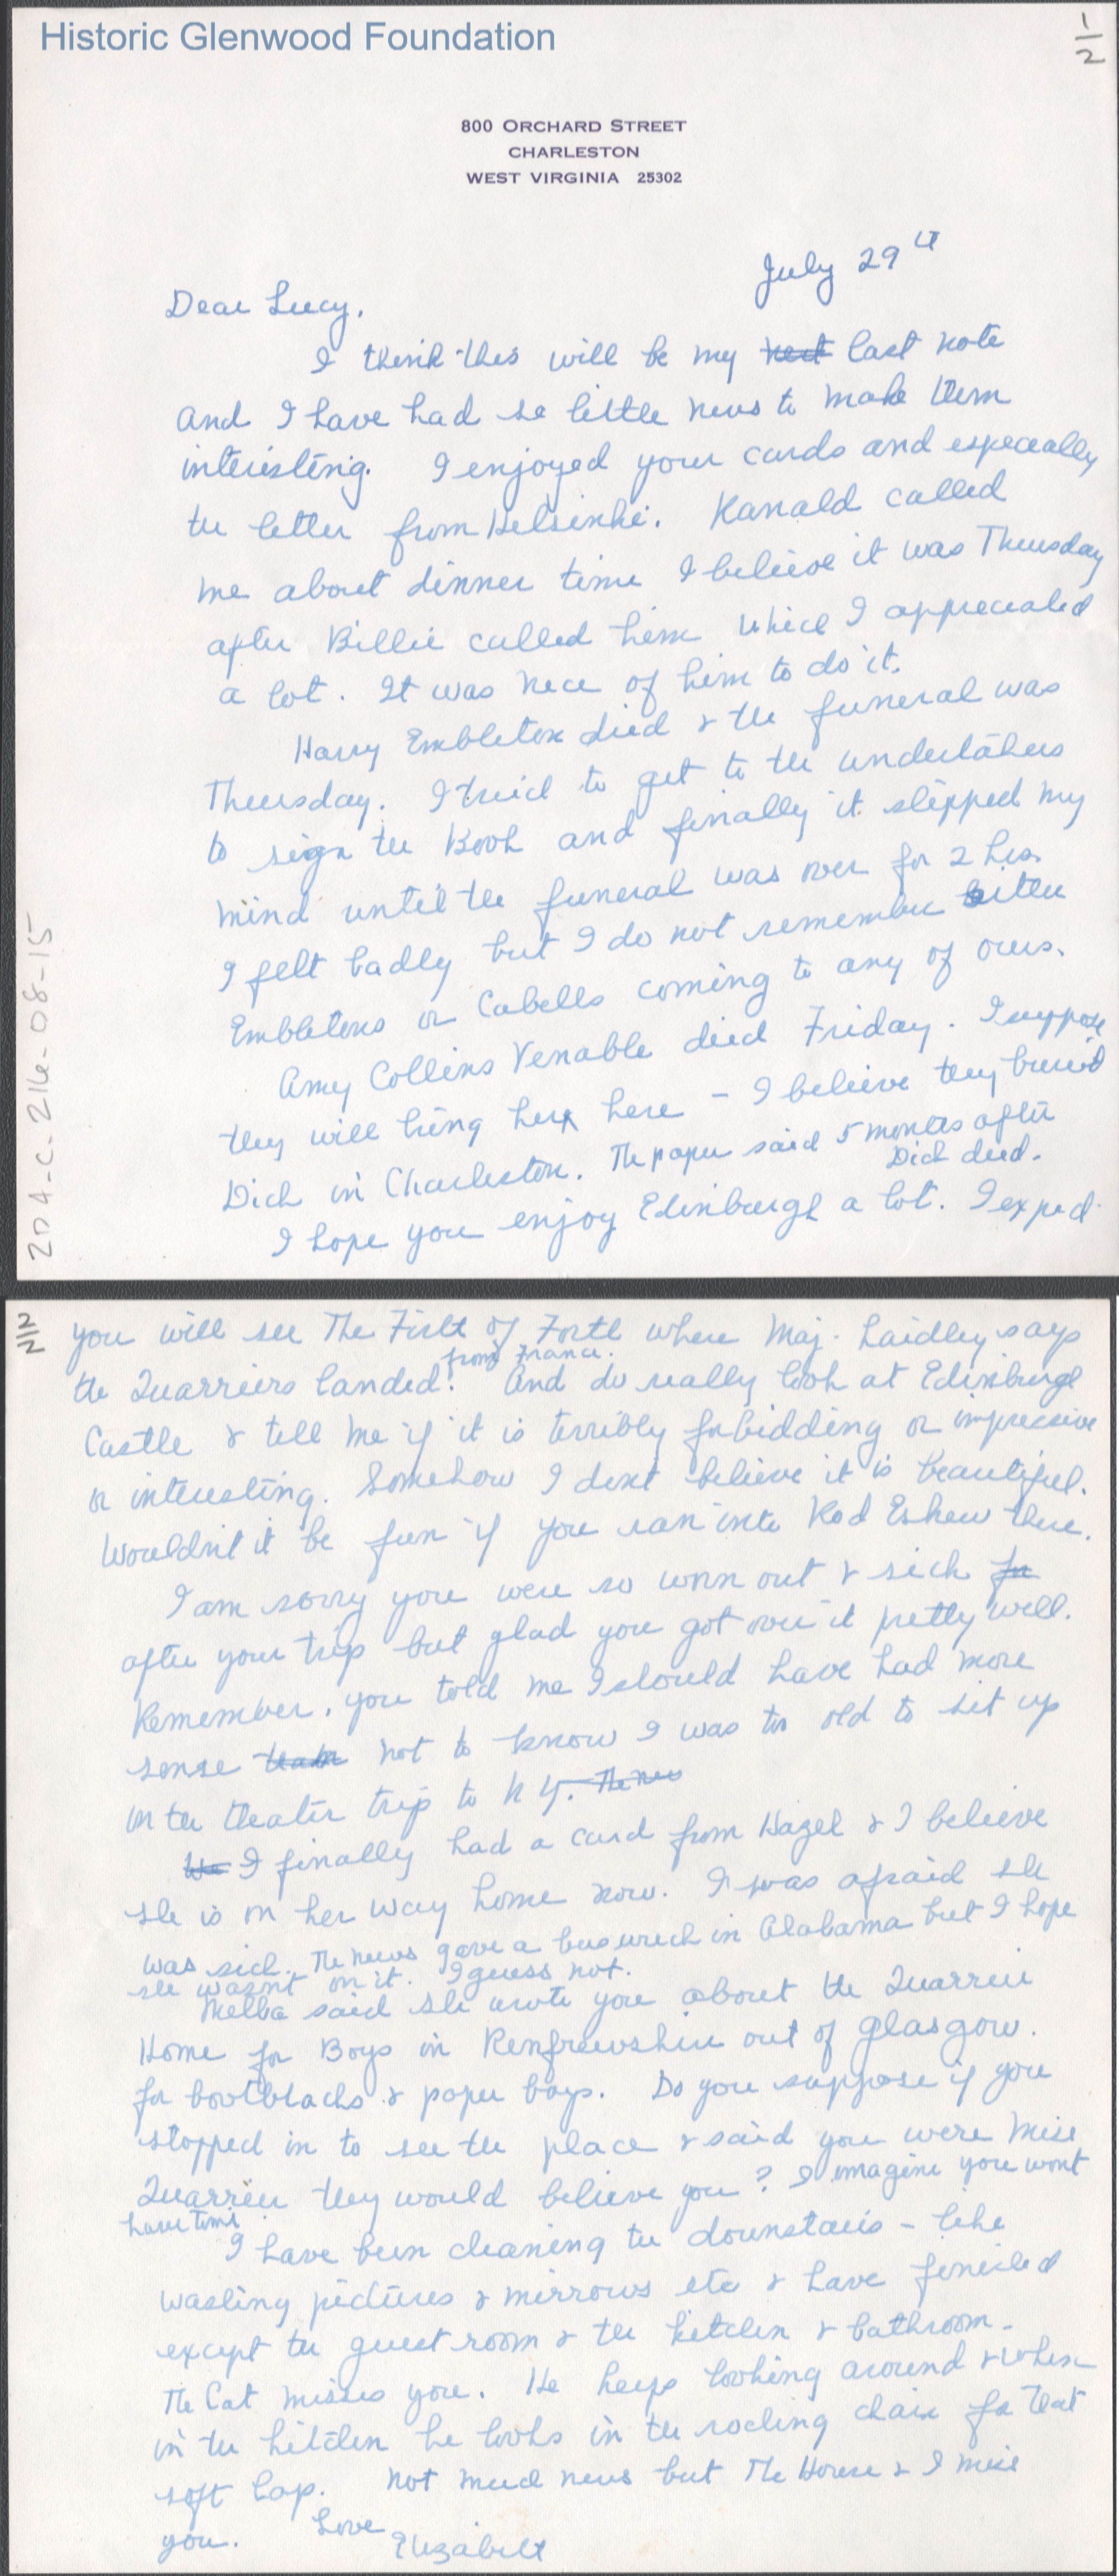 Historic Glenwood Foundation
1/2
800 ORCHARD STREET
CHARLESTON
WEST VIRGINIA 25302
July 29th
Dear Lucy,
I think this will be my next last note
And I have had so little news to make them
interesting. I enjoyed your cards and especially
the letter from Helsinki. Kanald called
me about dinner time I believe it was Thursday
after Billie called him which I appreciated
a lot. It was nice of him to do it.
Harry Embleton died & the funeral was
Thursday. I tried to get to the undertakers
to sign the Book and finally it slipped my
mind until the funeral was over for 2 hrs.
I felt badly but I do not remember either
Embletons or Cabells coming to any of ours.
Amy Collins Venable died Friday. I suppose
they will bring her here - I believe they buried
Dick in Charleston. The paper said 5 months after
Dick died.
I hope you enjoy Edinburgh a lot. I expect
204-C-216-08-15
2/2
you will see The Firth of Forth where Maj. Laidley says
the Quarriers landed from France. And do really look at Edinburgh
Castle & tell me if it is terribly forbidding or impressive
or interesting. Somehow I dont believe it is beautiful.
Wouldn't it be fun if you ran into Rod Eskew there.
I am sorry you were so worn out & sick for
after your trip but glad you got over it pretty well.
Remember, you told me I should have had more
sense than not to know I was too old to sit up
on the theater trip to N Y. The news
We I finally had a card from Hazel & I believe
she is on her way home now. I was afraid she
was sick. The news gave a bus wreck in Alabama but I hope
she wasn't on it. I guess not.
Melba said she wrote you about the Quarrier
Home for Boys in Renfrewshire out of Glasgow.
for bootblacks & paper boys. Do you suppose if you
stopped in to see the place & said you were Miss
Quarrier they would believe you? I imagine you wont
have time
I have been cleaning the downstairs - like
washing pictures & mirrows etc & have finished
except the guest room & the kitchen & bathroom.
The Cat misses you. He keeps looking around & when
in the kitchen he looks in the rocking chair for that
soft lap. Not much news but The House & I miss
you. Love
Elizabeth